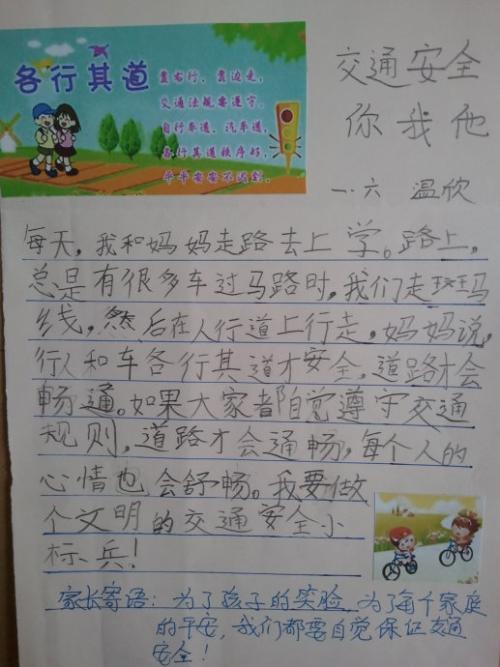 各行其道
靠右行，靠边走，
交通法规要遵守，
自行车道，汽车道，
各行其道秩序好，
平平安安不闯祸。
交通安全
你我他
一.六 温欣
每天，我和妈妈走路去上学。路上，
总是有很多车过马路时，我们走斑马
线，然后在人行道上行走，妈妈说，
行人和车各行其道才安全，道路才会
畅通。如果大家都自觉遵守交通
规则，道路才会通畅，每个人的
心情也会舒畅。我要做
个文明的交通安全小
标兵！
家长寄语：为了孩子的笑脸 为了每个家庭
的平安，我们都要自觉保证交通
安全！